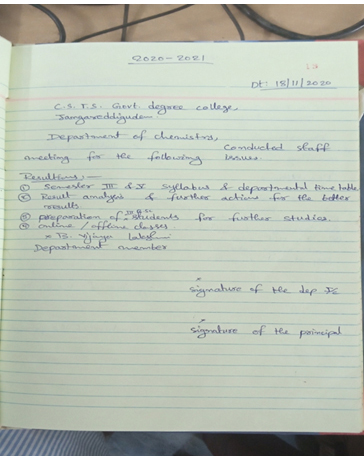 2020-2021
Dt: 18/11/2020
C.S.T.S. Govt. degree college,
Jangareddigudem.
Department of chemistry,
Conducted staff
meeting for the following issues.
Resultions:-
Semester III & V syllabus & departmental time table
Result analysis & further actions for the better
results.
III B.Sc
preparation of students for further studies.
online/offline classes.
Lakshmi
Department member
signature of the dep
signature of the principal